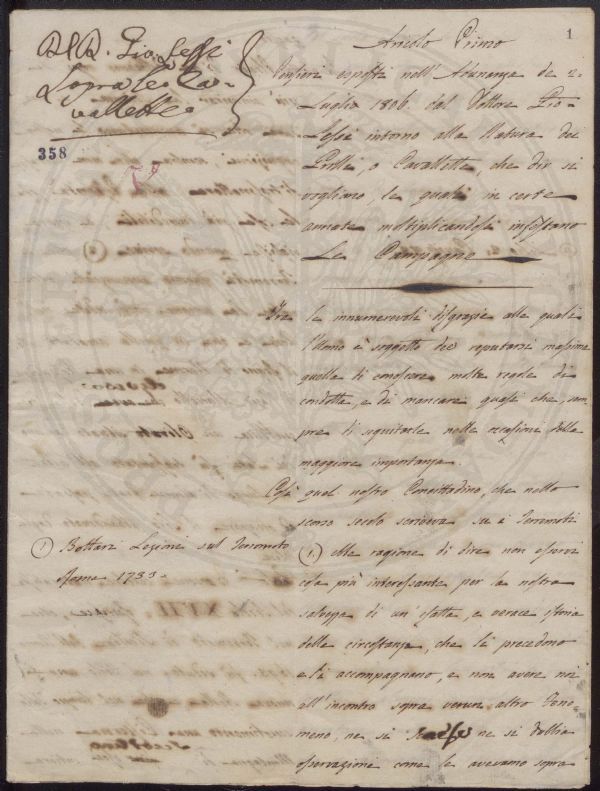 1
Del D. Gio. Lessi
Sopra le Ca-
vallette
358
Articolo Primo
Pensieri esposti nell'Adunanza de 2
Luglio 1806. dal Dottore Gio.
Lessi intorno alla Natura dei
Grilli, o Cavallette, che dir si
vogliano, le quali in certe
annate moltiplicandosi infestano
Le Campagne
Tra le innumerevoli disgrazie alle quali
l'Uomo è soggetto dee reputarsi massima
quella di conoscere molte regole di
condotta, e di mancare quasi che, sem
pre di seguitarle nelle occasioni della
maggiore importanza.
Così quel nostro Concittadino, che nello
scorso secolo scriveva su i Terremoti
(1) ebbe ragione di dire non esservi
cosa più interessante per la nostra
salvezza di un'esatta, e verace istoria
delle circostanze, che lo precedono
e lo accompagnano, e non avere noi
all'incontro sopra verun altro Feno-
meno, ne si ne si dubbia
osservazione come le avevamo sopra
(1) Bottari Lezioni sul Terremoto
Roma 1733.